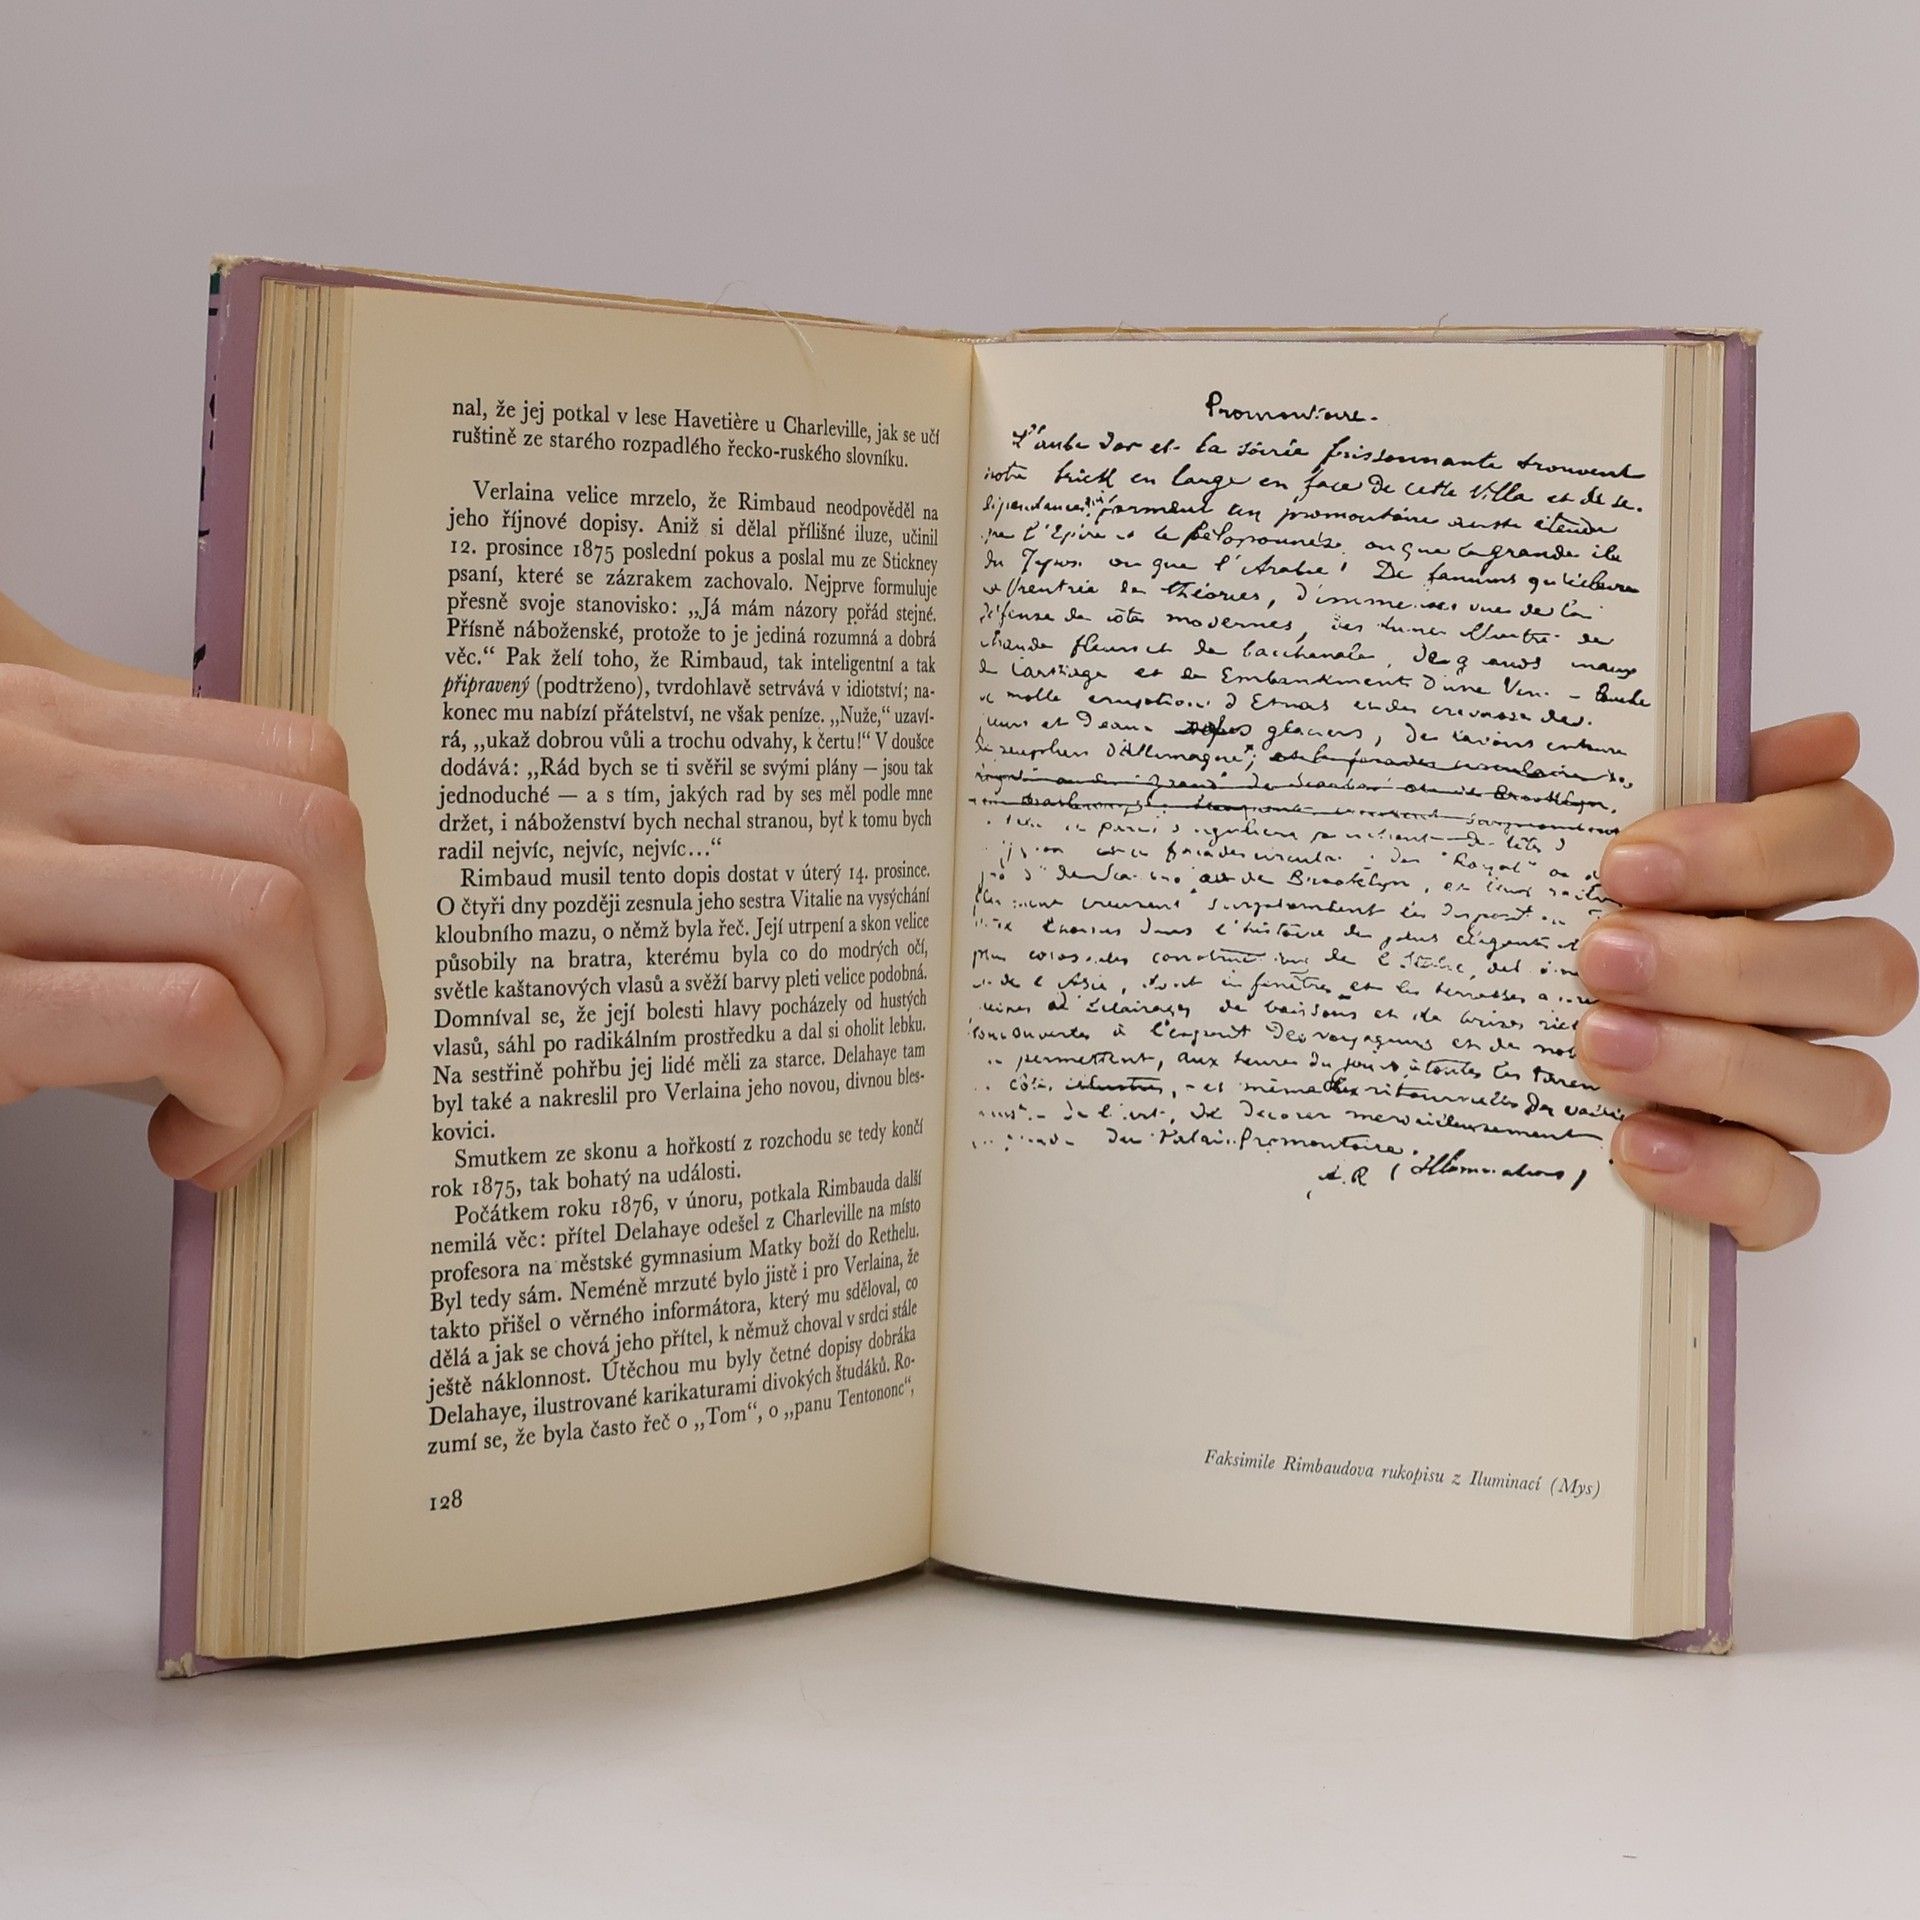 nal, že jej potkal v lese Havetière u Charleville, jak se učí
ruštině ze starého rozpadlého řecko-ruského slovníku.
Verlaina velice mrzelo, že Rimbaud neodpověděl na
jeho říjnové dopisy. Aniž si dělal přílišné iluze, učinil
12. prosince 1875 poslední pokus a poslal mu ze Stickney
psaní, které se zázrakem zachovalo. Nejprve formuluje
přesně svoje stanovisko: „Já mám názory pořád stejné.
Přísně náboženské, protože to je jediná rozumná a dobrá
věc.“ Pak želí toho, že Rimbaud, tak inteligentní a tak
připravený (podtrženo), tvrdohlavě setrvává v idiotství; na-
konec mu nabízí přátelství, ne však peníze. „Nuže,“ uzaví-
rá, „ukaž dobrou vůli a trochu odvahy, k čertu!“ V doušce
dodává: „Rád bych se ti svěřil se svými plány — jsou tak
jednoduché — a s tím, jakých rad by ses měl podle mne
držet, i náboženství bych nechal stranou, byť k tomu bych
radil nejvíc, nejvíc, nejvíc...“
Rimbaud musil tento dopis dostat v úterý 14. prosince.
O čtyři dny později zesnula jeho sestra Vitalie na vysýchání
kloubního mazu, o němž byla řeč. Její utrpení a skon velice
působily na bratra, kterému byla co do modrých očí,
světle kaštanových vlasů a svěží barvy pleti velice podobná.
Domníval se, že její bolesti hlavy pocházely od hustých
vlasů, sáhl po radikálním prostředku a dal si oholit lebku.
Na sestřině pohřbu jej lidé měli za starce. Delahaye tam
byl také a nakreslil pro Verlaina jeho novou, divnou bles-
kovici.
Smutkem ze skonu a hořkostí z rozchodu se tedy končí
rok 1875, tak bohatý na události.
Počátkem roku 1876, v únoru, potkala Rimbauda další
nemilá věc: přítel Delahaye odešel z Charleville na místo
profesora na městské gymnasium Matky boží do Rethelu.
Byl tedy sám. Neméně mrzuté bylo jistě i pro Verlaina, že
takto přišel o věrného informátora, který mu sděloval, co
dělá a jak se chová jeho přítel, k němuž choval v srdci stále
ještě náklonnost. Útěchou mu byly četné dopisy dobráka
Delahaye, ilustrované karikaturami divokých študáků. Ro-
zumí se, že byla často řeč o „Tom“, o „panu Tentononc“,
128
Promontoire.
L'aube d'or et la soirée frissonnante trouvent
notre brick en large en face de cette Villa et de ses
dépendances qui forment un promontoire aussi étendu
que l'Épire et le Péloponnèse, ou que la grande île
du Japon, ou que l'Arabie! Des fanums qu'éclaire
la rentrée des théories, d'immenses vues de la
défense des côtes modernes; des dunes illustrées de
chaudes fleurs et de bacchanales; de grands canaux
de Carthage et des Embankments d'une Venise
molles éruptions d'Etnas et des crevasses de
fleurs et d'eaux glaciers, des lavoirs entourés
de peupliers d'Allemagne;
façades circulaires des "Royal" ou
de Brooklyn
dans l'histoire des plus élégantes et
plus colossales constructions de l'Italie, de
de l'Asie, dont les fenêtres et les terrasses
d'éclairages, de boissons et de brises riches
ouvertes à l'esprit des voyageurs et des nobles
permettent, aux heures du jour, à toutes les
et même aux ritournelles des vallées
de l'art, de décorer merveilleusement
du Palais Promontoire.
A.R (Illuminations)
Faksimile Rimbaudova rukopisu z Iluminací (Mys)